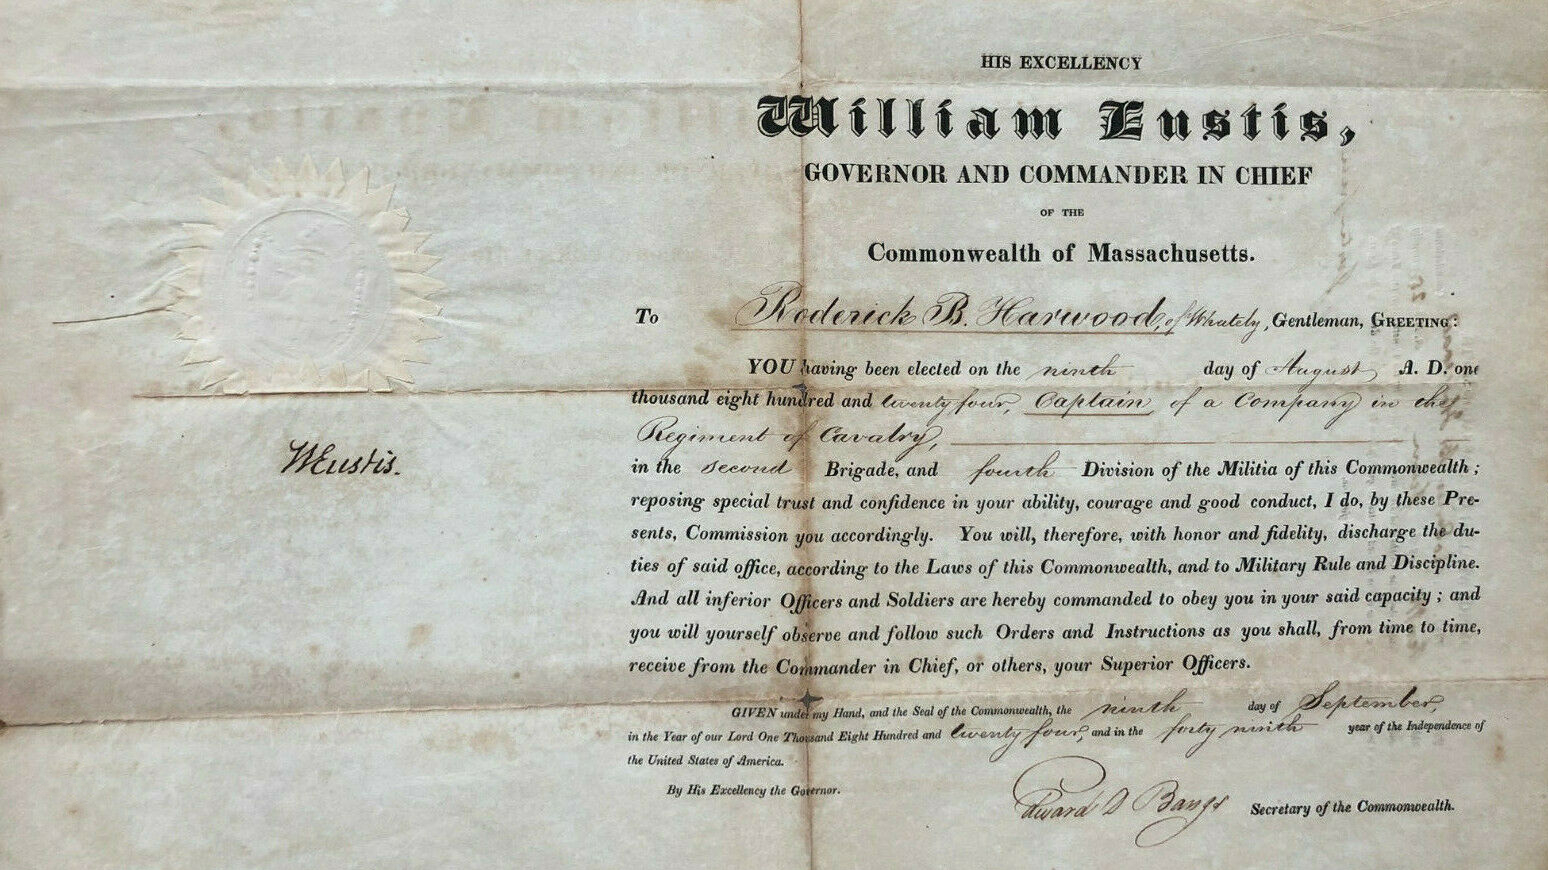 HIS EXCELLENCY
William Eustis,
GOVERNOR AND COMMANDER IN CHIEF
OF THE
Commonwealth of Massachusetts.
To Roderick B. Harwood, of Whately, Gentleman, GREETING:
YOU having been elected on the ninth day of August A. D. one
thousand eight hundred and twenty four, Captain of a Company in the
Regiment of Cavalry,
in the second Brigade, and fourth Division of the Militia of this Commonwealth;
reposing special trust and confidence in your ability, courage and good conduct, I do, by these Pre-
sents, Commission you accordingly. You will, therefore, with honor and fidelity, discharge the du-
ties of said office, according to the Laws of this Commonwealth, and to Military Rule and Discipline.
And all inferior Officers and Soldiers are hereby commanded to obey you in your said capacity; and
you will yourself observe and follow such Orders and Instructions as you shall, from time to time,
receive from the Commander in Chief, or others, your Superior Officers.
GIVEN under my Hand, and the Seal of the Commonwealth, the ninth day of September,
in the Year of our Lord One Thousand Eight Hundred and twenty four, and in the forty ninth year of the Independence of
the United States of America.
By His Excellency the Governor.
Edward D Bangs Secretary of the Commonwealth.
WEustis.